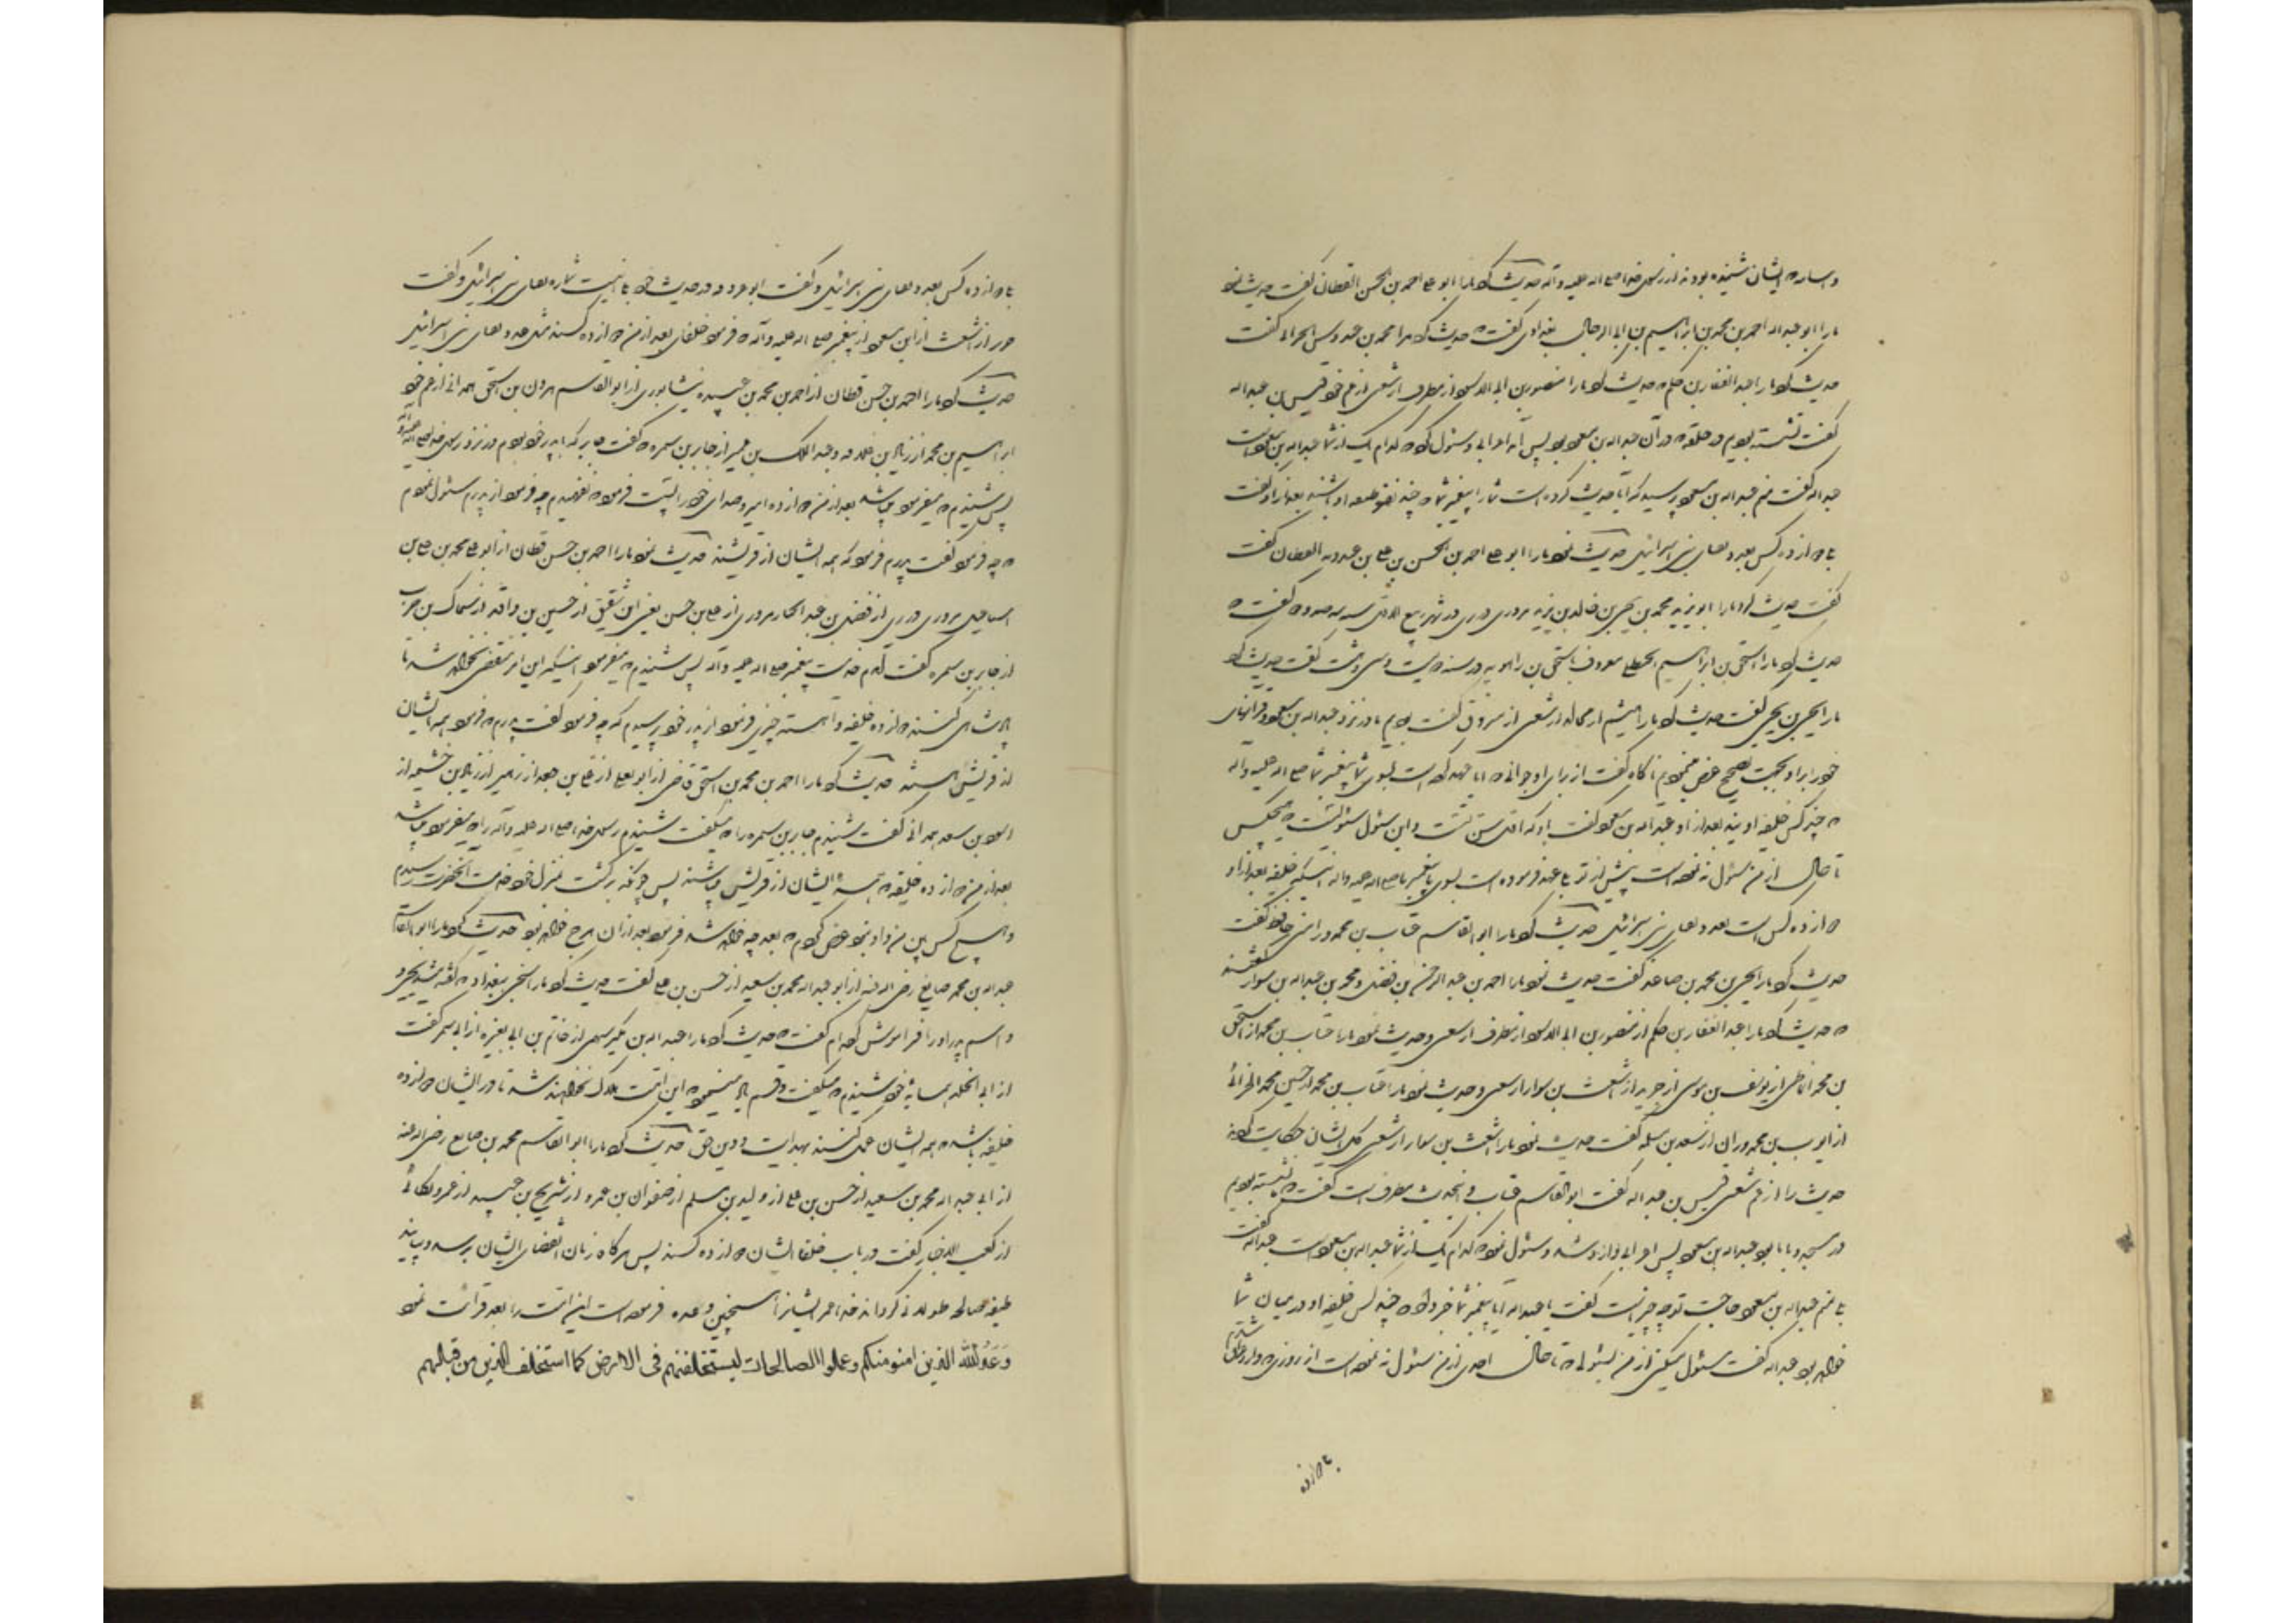 و اسامی ایشان شنیده بودند از رسول خدا صلی الله علیه و آله حدیث کرد ما را ابو علی احمد بن الحسن القطان گفت حدیث نمود
ما را ابو عبد الله احمد بن محمد بن ابراهیم بن ابی الرجال بغدادی گفت که حدیث کرد مرا محمد بن عبدوس الحرانی گفت
حدیث کرد ما را عبد الغفار بن حکم که حدیث کرد ما را منصور بن ابی الاسود از مطرف از شعبی از عم خود قیس بن عبد الله
گفت نشسته بودیم در حلقه که در آن عبد الله بن مسعود بود پس آمد اعرابی و سئوال کرد که کدام یک از شما عبد الله بن مسعود است
عبد الله گفت منم عبد الله بن مسعود پرسید که آیا حدیث کرده است شما را پیغمبر شما که چند نفر خلیفه او باشند بعد از او گفت
بلی دوازده کس بعدد نقبای بنی اسرائیل حدیث نمود ما را ابو علی احمد بن الحسن بن علی بن عبدویه القطان گفت
گفت حدیث کرد ما را ابو یزید محمد بن یحیی بن خالد بن یزید مروزی در ری در شهر ربیع الاول سنه سیصد و دو گفت که
حدیث کرد ما را اسحق بن ابراهیم الحنظلی معروف باسحق بن راهویه در سنه دویست و سی و هشت گفت حدیث کرد
ما را یحیی بن یحیی گفت حدیث کرد ما را هشیم از مجالد از شعبی از مسروق گفت بودیم ما در نزد عبد الله بن مسعود و قرآنهای
خود را بر او بجهت تصحیح عرض مینمودیم ناگاه گفت از برای او جوانی که آیا عهد کرده است بسوی شما پیغمبر شما صلی الله علیه و آله
که چند کس خلیفه اویند بعد از او عبد الله بن مسعود گفت باو که اول سن تست و این سئول سئولیست که هیچکس
تا حال از من سئول ننموده است پیش از تو بلی عهد فرموده است بسوی ما پیغمبر ما صلی الله علیه و آله اینکه خلیفه بعد از او
دوازده کس است بعدد نقبای بنی اسرائیل حدیث کرد ما را ابو القاسم عتاب بن محمد ورامینی حافظ گفت
حدیث کرد ما را یحیی بن محمد بن صاعد گفت حدیث نمود ما را احمد بن عبد الرحمن بن فضل و محمد بن عبد الله بن سوار گفتند
که حدیث کرد ما را عبد الغفار بن حکم از منصور بن ابی الاسود از مطرف از شعبی و حدیث نمود ما را عتاب بن محمد از اسحق
بن محمد انماطی از یوسف بن موسی از جریر از اشعث بن سوار از شعبی و حدیث نمود ما را عتاب بن محمد از حسین محمد الحرانی
از ایوب بن محمد وزان از سعید بن مسلمه گفت حدیث نمود ما را اشعث بن سوار از شعبی کل ایشان حکایت کردند
حدیث را از عم شعبی قیس بن عبد الله گفت ابو القاسم عتاب و این حدیث مطرف است گفت که نشسته بودیم
در مسجد و با ما بود عبد الله بن مسعود پس اعرابی وارد شد و سئول نمود که کدام یک از شما عبد الله بن مسعود است عبد الله گفت
بلی منم عبد الله بن مسعود حاجت تو چه چیز است گفت یا عبد الله آیا پیغمبر شما خبر داد که چند کس خلیفه او در میان شما
خواهد بود عبد الله گفت سئول میکنی از من بسئولی که تا حال احدی از من سئول ننموده است از روزی که وارد عراق شدم
بلی دوازده
بلی دوازده کس بعدد نقبای بنی اسرائیل و گفت ابو عروبه در حدیث خود بلی اینست شماره نقبای بنی اسرائیل و گفت
جریر از اشعث از ابن مسعود از پیغمبر صلی الله علیه و آله که فرمود خلفای بعد از من دوازده کسند مثل عدد نقبای بنی اسرائیل
حدیث کرد ما را احمد بن حسن قطان از احمد بن محمد بن عبیده نیشابوری از ابو القاسم هرون بن اسحق همدانی از عم خود
ابراهیم بن محمد از زیاد بن علاقه و عبد الملک بن عمیر از جابر بن سمره گفت جابر که با پدر خود بودم در نزد رسول خدا صلی الله علیه و آله
پس شنیدم که میفرمود میباشد بعد از من دوازده امیر و صدای خود را پست فرمود که نفهمیدم چه فرمود از پدرم سئول نمودم
که چه فرمود گفت پدرم فرمود که همه ایشان از قریشند حدیث نمود ما را احمد بن حسن قطان از ابو علی محمد بن علی بن
اسماعیل مروزی در ری از فضل بن عبد الجبار مروزی از علی بن حسن یعنی ابن شقیق از حسین بن واقد از سماک بن حرب
از جابر بن سمره گفت آمدم خدمت پیغمبر صلی الله علیه و آله پس شنیدم که میفرمود اینکه این امر منقضی نخواهد شد تا
پادشاهی کنند دوازده خلیفه و آهسته چیزی فرمود از پدر خود پرسیدم که چه فرمود گفت پدرم که فرمود همه ایشان
از قریش هستند حدیث کرد ما را احمد بن محمد بن اسحق قاضی از ابو یعلی از علی بن جعد از زهیر از زیاد بن خثیمه از
اسود بن سعید همدانی گفت شنیدم جابر بن سمره را که میگفت شنیدم رسول خدا صلی الله علیه و آله را که میفرمود میباشد
بعد از من دوازده خلیفه که همه ایشان از قریش میباشند پس چونکه برگشت بمنزل خود خدمت آنحضرت رسیدم
و هیچ کس بین من و او نبود عرض کردم که بعد چه خواهد شد فرمود بعد از آن هرج خواهد بود حدیث کرد ما را ابو القاسم
عبد الله بن محمد صایغ رضی الله عنه از ابو عبد الله محمد بن سعید از حسن بن علی گفت حدیث کرد ما را شیخی ببغداد که گفته میشد یحیی و
و اسم پدر او را فراموش کرده ام گفت که حدیث کرد ما را عبد الله بن بکر سهمی از حاتم بن ابی مغیره از ابی بحر گفت
از ابی الخلد همسایه خود شنیدم که میگفت و قسم یاد مینمود که این امت هلاک نخواهند شد تا در ایشان دوازده
خلیفه باشد که همه ایشان عمل کنند بهدایت و دین حق حدیث کرد ما را ابو القاسم محمد بن صایغ رضی الله عنه
از ابی عبد الله محمد بن سعید از حسن بن علی از ولید بن مسلم از صفوان بن عمرو از شریح بن عبید از عمرو بکائی
از کعب الاحبار گفت در باب خلفا ایشان دوازده کسند پس هرگاه زمان انقضای ایشان برسد و بیاید
طبقه صالحه طولانی گرداند خدا عمر ایشانرا همچنین وعده فرموده است این امت را بعد قرائت نمود
وَعَدَ الله الذین امنو منکم وعملوا الصالحات لیستخلفنهم فی الارض کما استخلف الذین من قبلهم